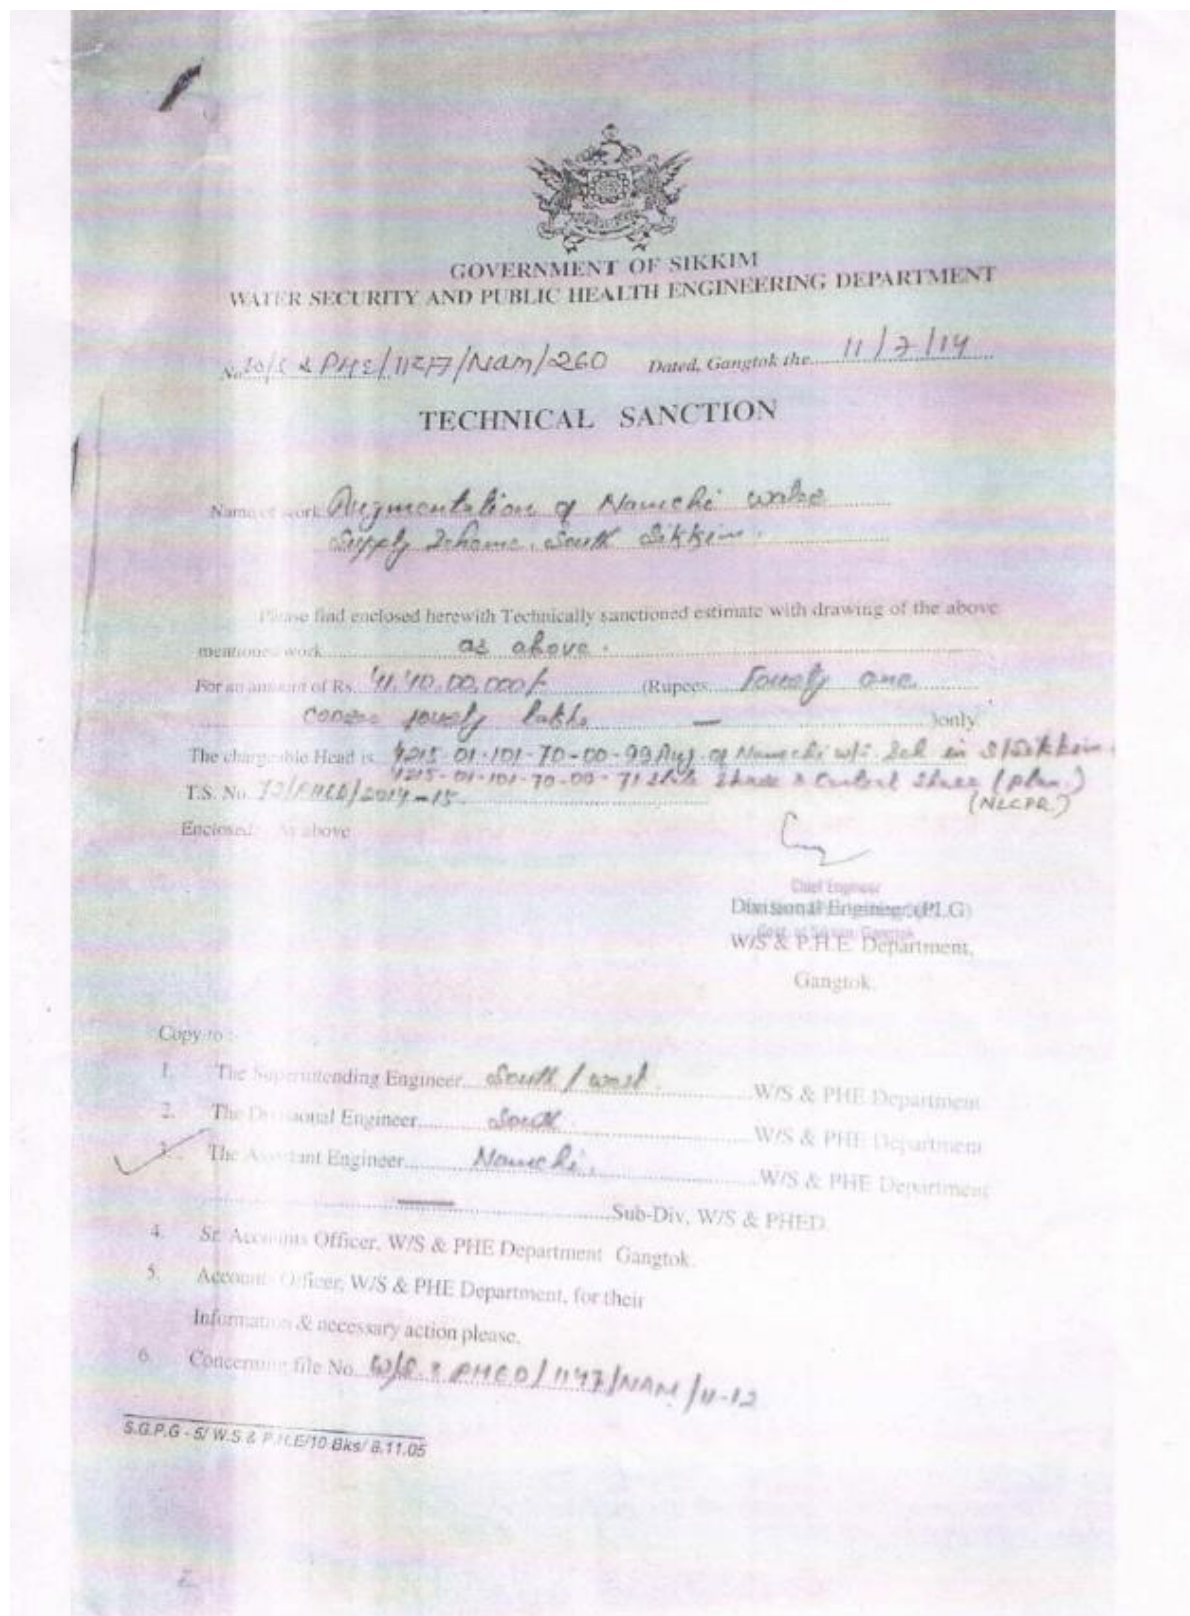 GOVERNMENT OF SIKKIM
WATER SECURITY AND PUBLIC HEALTH ENGINEERING DEPARTMENT
No. & PHE/ /Nam/260 Dated, Gangtok the 11/7/14
TECHNICAL SANCTION
Name of work Augmentation of Namchi water
Supply Scheme, South Sikkim.
Please find enclosed herewith Technically sanctioned estimate with drawing of the above
mentioned work as above.
For an amount of Rs. 41,40,00,000/- (Rupees Fourty one
crores fourty lakhs — )only
The chargeable Head is 4215-01-101-70-00-99 Aug. of Namchi w/s. Sch in S/Sikkim.
4215-01-101-70-00-71 State Share & Central Share (plan.)
T.S. No. /PHED/2014-15 (NLCPR)
Enclosed: As above
Chief Engineer
Divisional Engineer (PLG)
W/S & P.H.E. Department,
Gangtok.
Copy to :-
1. The Superintending Engineer South / West W/S & PHE Department
2. The Divisional Engineer South W/S & PHE Department
3. The Assistant Engineer Namchi. W/S & PHE Department
Sub-Div, W/S & PHED.
4. Sr. Accounts Officer, W/S & PHE Department Gangtok.
5. Accounts Officer, W/S & PHE Department, for their
Information & necessary action please.
6. Concerning file No. W/S & PHED/1147/NAM/11-12
S.G.P.G - 5/ W.S & P.H.E/10 Bks/ 8.11.05